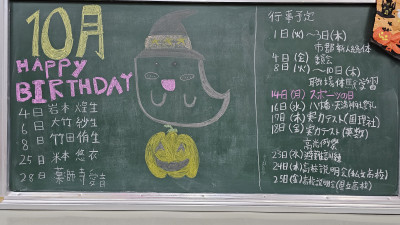 10月
HAPPY
BIRTHDAY
4日 岩本 煌生
6日 大竹 紗生
8日 竹田 侑生
25日 米本 悠衣
28日 薬師寺 愛音
行事予定
1日(火)〜3日(木)
市郡新人総体
4日(金)
8日(火)〜10日(木)
職場体験学習
14日(月) スポーツの日
16日(水)
17日(木) 実力テスト(国理社)
18日(金) 実力テスト(英数)
23日(水) 避難訓練
24日(木) 高校説明会(私立高校)
25日(金) 高校説明会(県立高校)